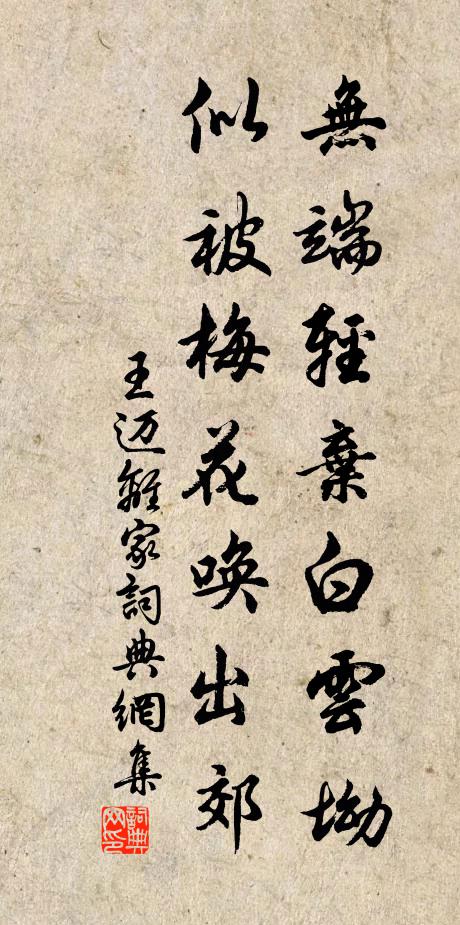 無端輕棄白雲坳
似被梅花喚出郊
王迈離家詞典網集
詞典
网印